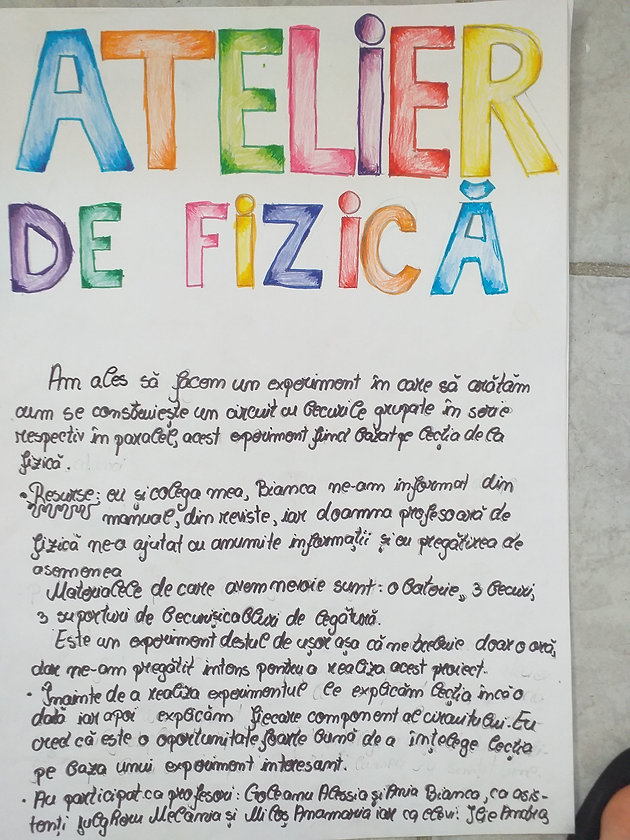 ATELiER
DE FiZiCĂ
Am ales să facem un experiment în care să arătăm
cum se construiește un circuit cu becurile grupate în serie
respectiv în paralel, acest experiment fiind bazat pe lecția de la
fizică.
• Resurse: eu și colega mea, Bianca ne-am informat din
manual, din reviste, iar doamna profesoară de
fizică ne-a ajutat cu anumite informații și cu pregătirea de
asemenea
Materialele de care avem nevoie sunt: o baterie, 3 becuri,
3 suporturi de becuri și cabluri de legătură.
Este un experiment destul de ușor așa că ne trebuie doar o oră,
dar ne-am pregătit intens pentru a realiza acest proiect.
• Înainte de a realiza experimentul le explicăm lecția încă o
dată iar apoi explicăm fiecare component al circuitului. Eu
cred că este o oportunitate foarte bună de a înțelege lecția
pe baza unui experiment interesant.
• Au participat ca profesori: Alessia și Bianca, ca asis-
tenți Melania și Anamaria iar ca elevi: